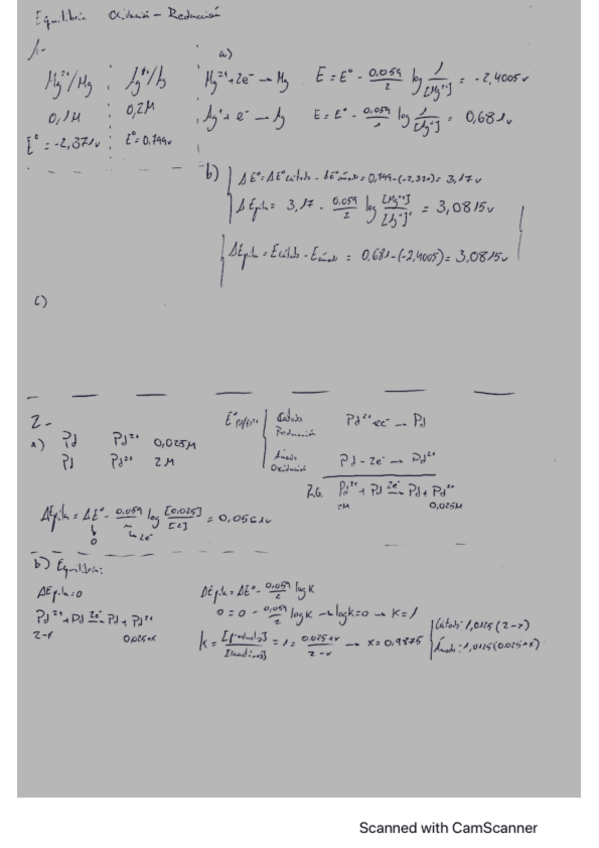 Equilibrio Oxidación - Reducción
1-
a)
Mg²⁺/Mg Ag⁺/Ag Mg²⁺ + 2e⁻ → Mg E = E° - 0.059/2 log 1/[Mg²⁺] = -2,4005v
0,1M 0,2M Ag⁺ + e⁻ → Ag E = E° - 0.059/1 log 1/[Ag⁺] = 0,681v
E° = -2,371v E° = 0.799v
b) ΔE° = ΔE° cátodo - ΔE° ánodo = 0,799-(-2,371) = 3,17v
ΔEpila = 3,17 - 0.059/2 log = 3,0815v
ΔEpila = Ecátodo - Eánodo = 0,681-(-2,4005) = 3,0815v
c)
2-
a) Pd Pd²⁺ 0,025M
Pd Pd²⁺ 2M
Cátodo Reducción Pd²⁺ 2e⁻ → Pd
Ánodo Oxidación Pd - 2e⁻ → Pd²⁺
Pd²⁺ + Pd 2e⁻ Pd + Pd²⁺
2M 0,025M
ΔEpila = ΔE° - 0,059/2 log [0,025]/[2] = 0,0561v
0 2e⁻
b) Equilibrio:
ΔEpila = 0 ΔEpila = ΔE° - 0,059/2 log K
0 = 0 - 0,059/2 log K → log K = 0 → K = 1
Pd²⁺ + Pd 2e⁻ Pd + Pd²⁺
2-x 0,025+x
K = [productos]/[reactivos] = 1 = 0.025+x/2-x → x = 0,9875
Cátodo: 1,0125 (2-x)
Ánodo: 1,0125 (0.025+x)
Scanned with CamScanner